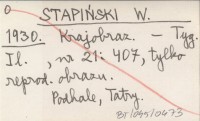 STAPIŃSKI W.
1930. Krajobraz. - Tyg.
Il., na 21: 407, tylko
reprod. obrazu.
Podhale, Tatry.